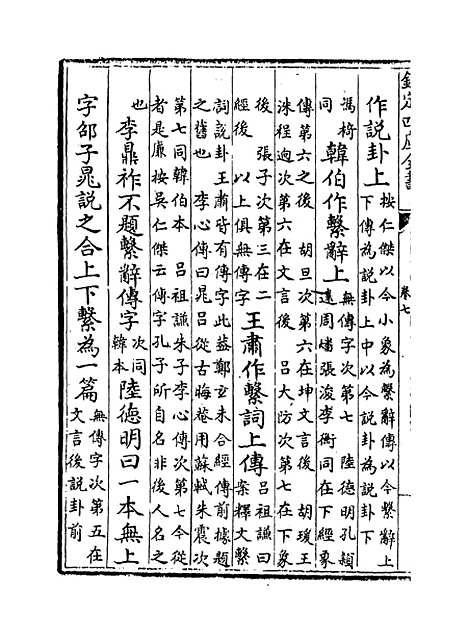 欽定四庫全書
卷七
作說卦上
按仁傑以今小象為繫辭傳以今繫辭上
下傳為説卦上中以今説卦為説卦下
馮椅
同
韓伯作繫辭上
無傳字次第七　陸德明孔穎
達周燔張浚李衡同在下經象
傳第六之後　胡旦次第六在坤文言後　胡瑗王
洙程迥次第六在文言後　呂大防次第七在下象
後　張子次第三在二
經後　以上俱無傳字
王肅作繫詞上傳
呂祖謙曰
案釋文繫
詞説卦王肅皆有傳字此葢鄭玄未合經傳前據題
之舊也　李心傳曰晁呂從古晦菴用蘇軾朱震次
第七同韓伯本　呂祖謙朱子李心傳次第七今從
者是廉按吳仁傑云傳字孔子所自名非後人名之
也
李鼎祚不題繫辭傳字
次同
韓本
陸德明曰一本無上
字邵子晁説之合上下繫為一篇
無傳字次第五在
文言後説卦前